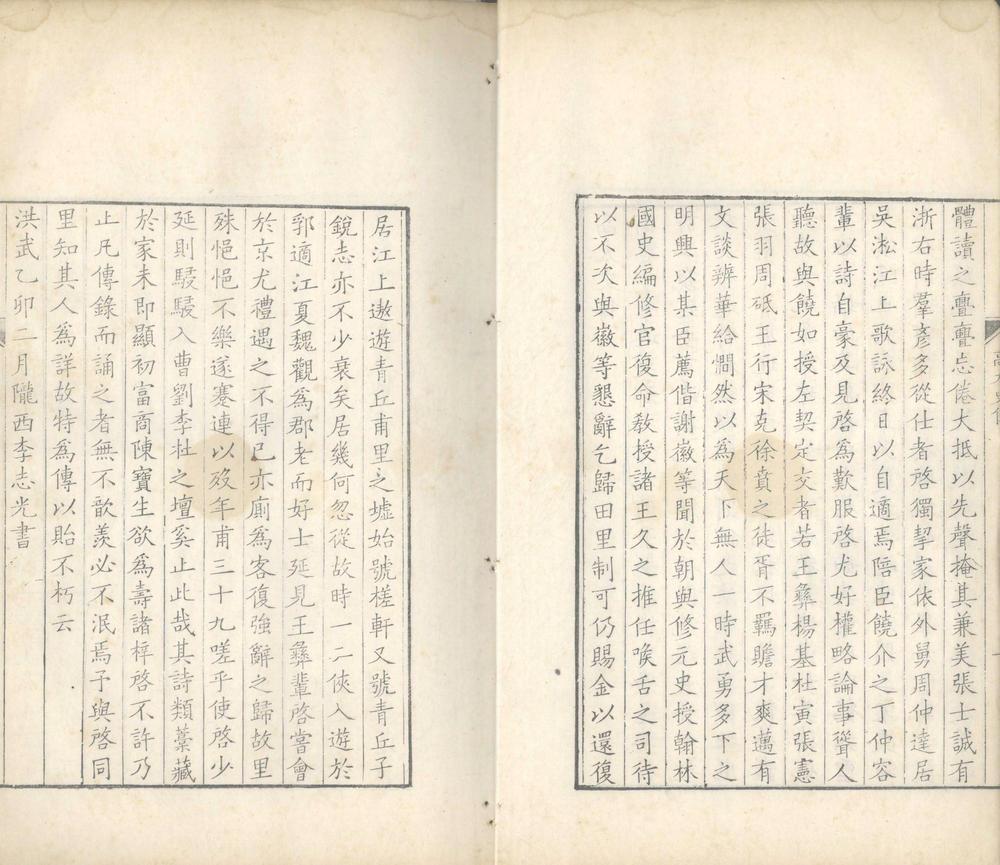 體讀之亹亹忘倦大抵以先聲掩其兼美張士誠有
浙右時羣彥多從仕者啓獨挈家依外舅周仲達居
吳淞江上歌詠終日以自適焉陪臣饒介之丁仲容
輩以詩自豪及見啓爲歎服啓尤好權略論事聳人
聽故與饒如授左契定交者若王彝楊基杜寅張憲
張羽周砥王行宋克徐賁之徒胥不羈贍才爽邁有
文談辨華給憪然以爲天下無人一時武勇多下之
明興以某臣薦偕謝徽等聞於朝與修元史授翰林
國史編修官復命敎授諸王久之推任喉舌之司待
以不次與徽等懇辭乞歸田里制可仍賜金以還復
居江上遨遊青丘甫里之墟始號槎軒又號青丘子
銳志亦不少衰矣居幾何忽從故時一二俠入遊於
郭適江夏魏觀爲郡老而好士延見王彝輩啓嘗會
於京尤禮遇之不得已亦廁爲客復強辭之歸故里
殊悒悒不樂遂蹇連以歿年甫三十九嗟乎使啓少
延則駸駸入曹劉李杜之壇奚止此哉其詩類藁藏
於家未即顯初富商陳寶生欲爲壽諸梓啓不許乃
止凡傳錄而誦之者無不歆羨必不泯焉予與啓同
里知其人爲詳故特爲傳以貽不朽云
洪武乙卯二月隴西李志光書